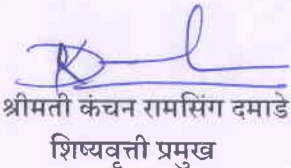 श्रीमती कंचन रामसिंग दमाडे
शिष्यवृत्ती प्रमुख